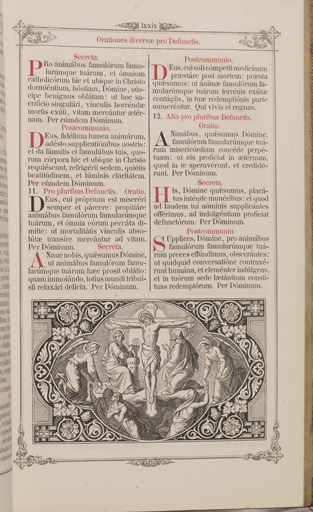 lxxix
Orationes diversæ pro Defunctis.
Secreta.
PRo animábus famulórum famu-
larúmque tuárum, et ómnium
catholicórum hic et ubíque in Christo
dormiéntium, hóstiam, Dómine, sús-
cipe benígnus oblátam: ut hoc sa-
crifício singulári, vínculis horréndæ
mortis exúti, vitam mereántur ætér-
nam. Per eúmdem Dóminum.
Postcommunio.
DEus, fidélium lumen animárum,
adésto supplicatiónibus nostris:
et da fámulis et famulábus tuis, quo-
rum córpora hic et ubíque in Christo
requiéscunt, refrigérii sedem, quiétis
beatitúdinem, et lúminis claritátem.
Per eúmdem Dóminum.
11. Pro pluribus Defunctis. Oratio.
DEus, cui próprium est miseréri
semper et párcere: propitiáre
animábus famulórum famularúmque
tuárum, et ómnia eórum peccáta di-
mítte: ut mortalitátis vínculis abso-
lútæ transíre mereántur ad vitam.
Per Dóminum. Secreta.
ANnue nobis, quǽsumus Dómine,
ut animábus famulórum famu-
larúmque tuárum hæc prosit oblátio:
quam immolándo, totíus mundi tribuí-
sti relaxári delícta. Per Dóminum.
Postcommunio.
DEus, cui soli cómpetit medicínam
præstáre post mortem: præsta
quǽsumus; ut ánimæ famulórum fa-
mularúmque tuárum terrénis exútæ
contágiis, in tuæ redemptiónis parte
numeréntur. Qui vivis et regnas.
12. Alia pro pluribus Defunctis.
Oratio.
ANimábus, quǽsumus Dómine,
famulórum famularúmque tuá-
rum misericórdiam concéde perpé-
tuam: ut eis profíciat in ætérnum,
quod in te speravérunt, et credidé-
runt. Per Dóminum.
Secreta.
HIs, Dómine quǽsumus, placá-
tus inténde munéribus: et quod
ad laudem tui nóminis supplicántes
offérimus, ad indulgéntiam profíciat
defunctórum. Per Dóminum.
Postcommunio.
SUpplíces, Dómine, pro animábus
famulórum famularúmque tuá-
rum preces effúndimus, obsecrántes:
ut quidquid conversatióne contraxé-
runt humána, et cleménter indúlgeas,
et in tuórum sede lætántium constí-
tuas redemptórum. Per Dóminum.